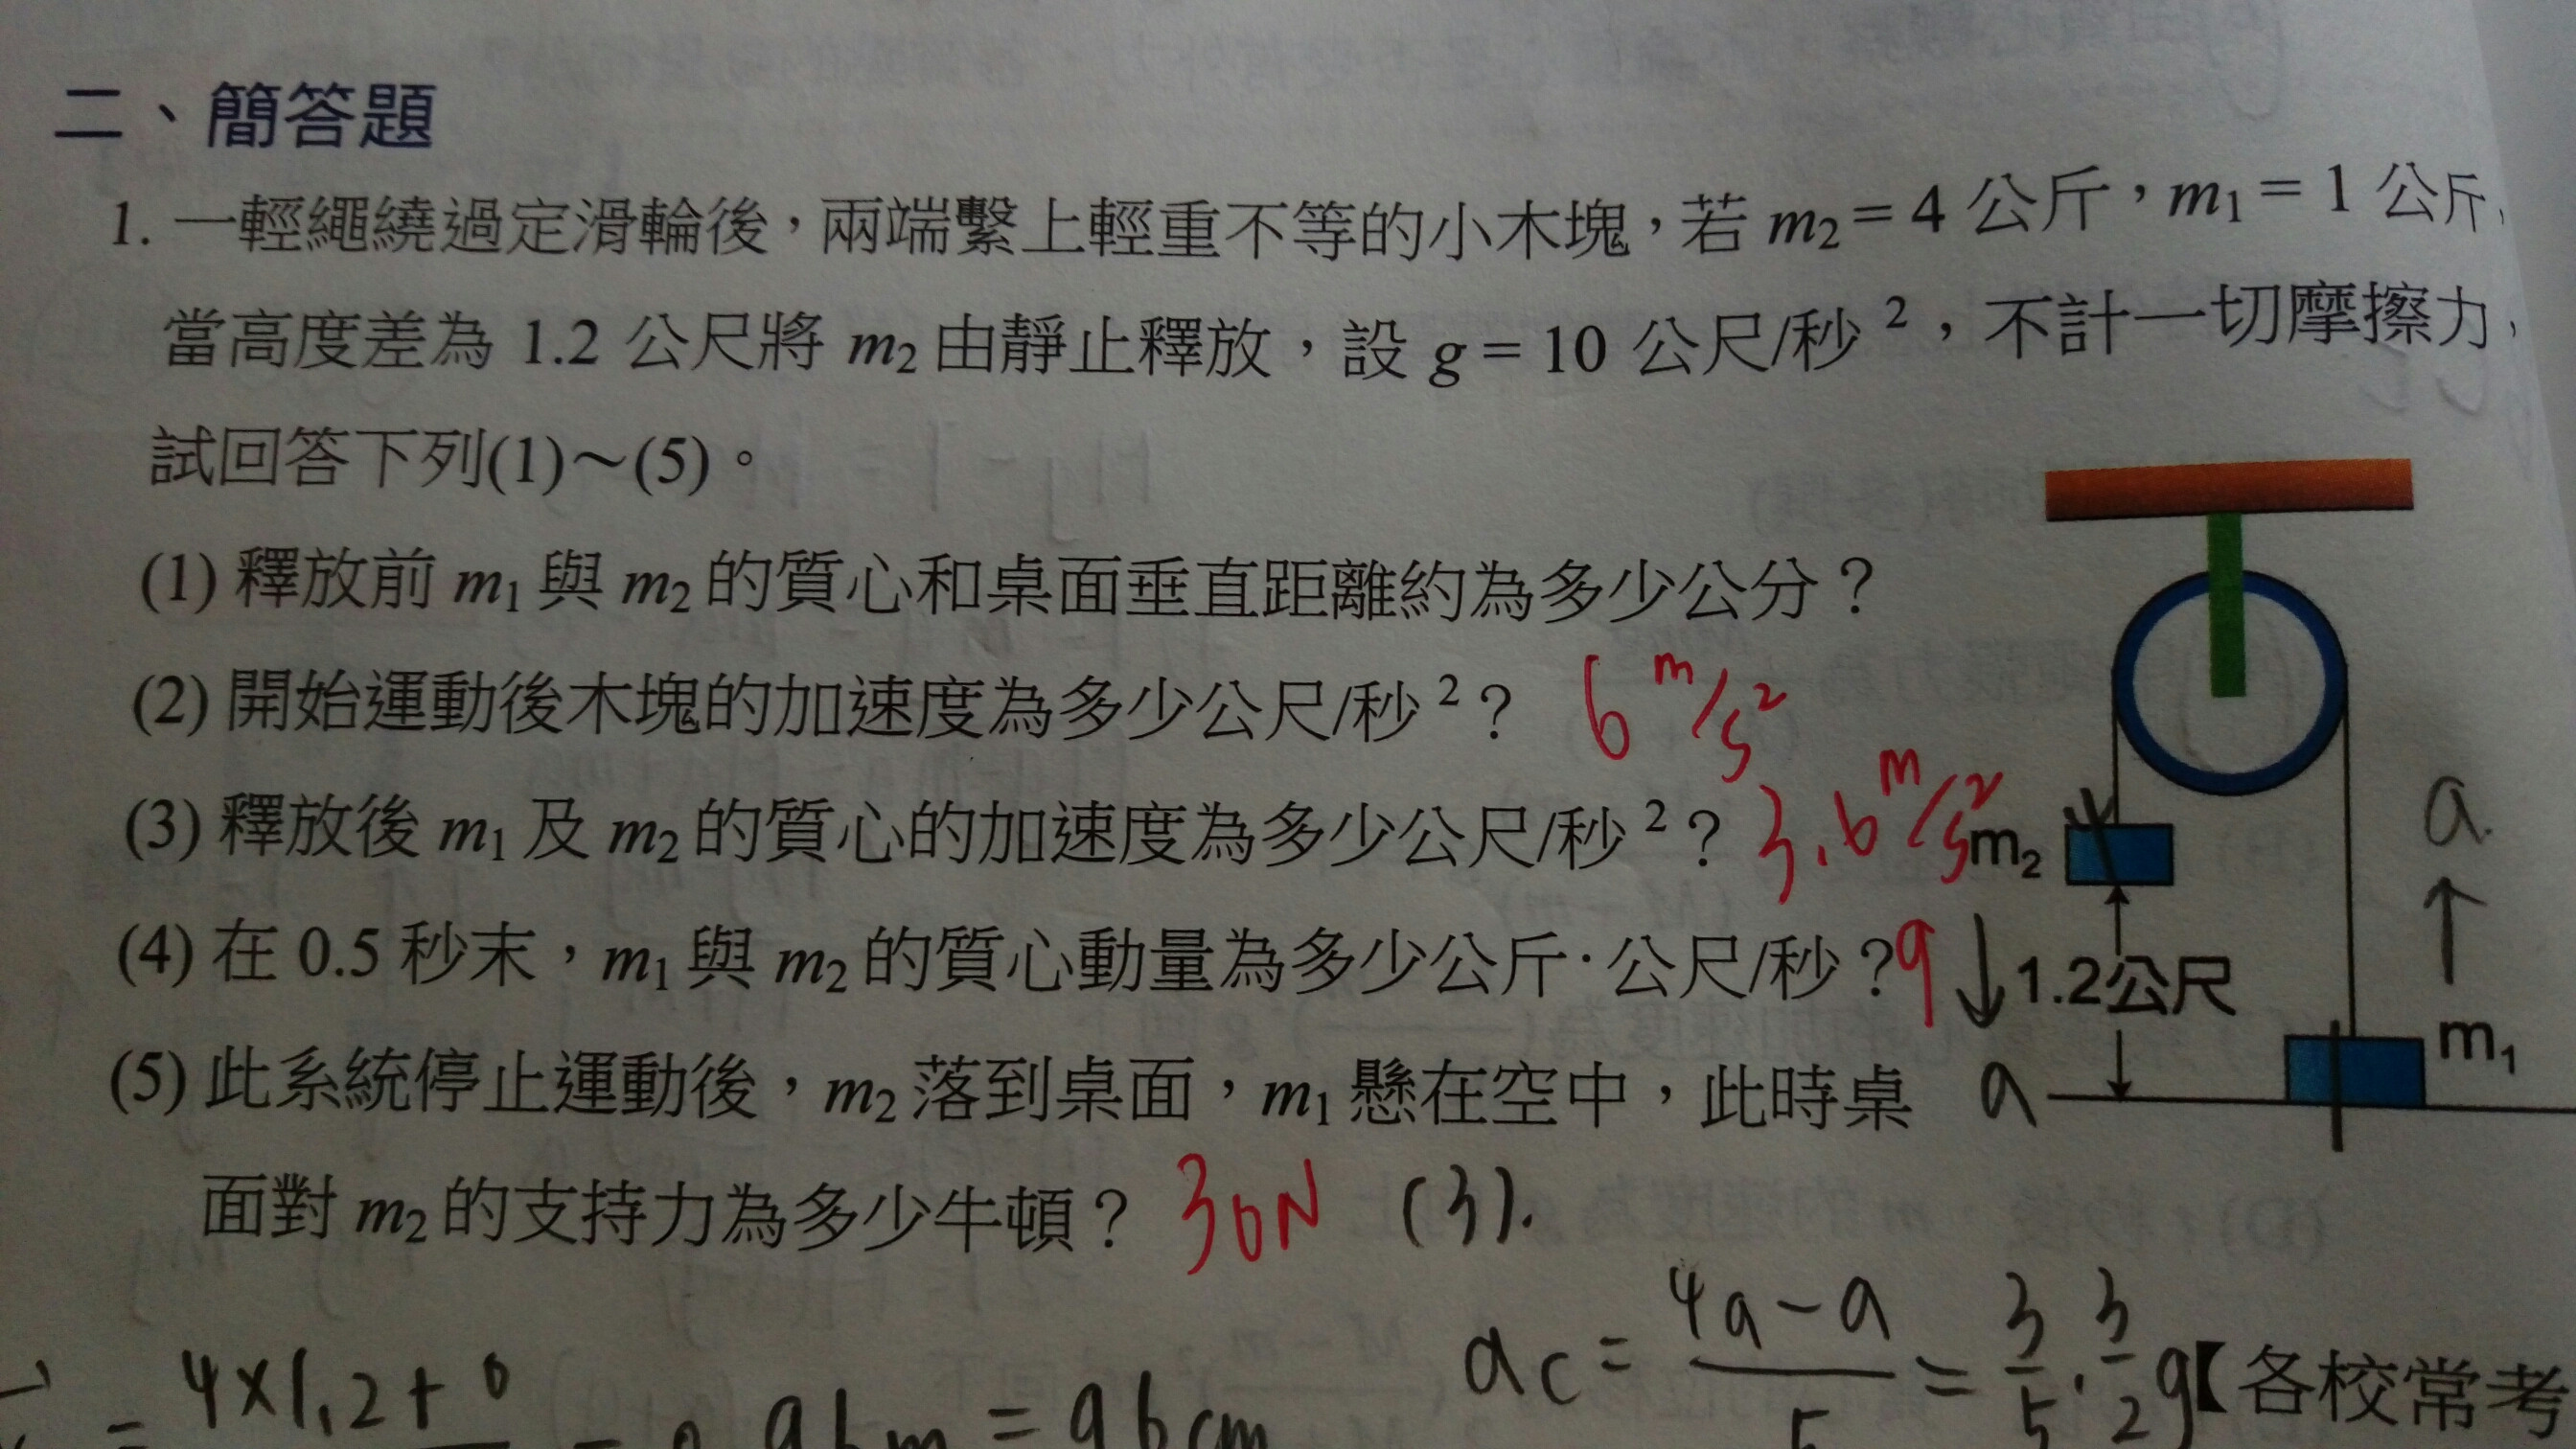 二、簡答題
1. 一輕繩繞過定滑輪後，兩端繫上輕重不等的小木塊，若 m₂ = 4 公斤，m₁ = 1 公斤，
當高度差為 1.2 公尺將 m₂ 由靜止釋放，設 g = 10 公尺/秒²，不計一切摩擦力，
試回答下列(1)～(5)。
(1) 釋放前 m₁ 與 m₂ 的質心和桌面垂直距離約為多少公分？
(2) 開始運動後木塊的加速度為多少公尺/秒²？ 6 m/s²
(3) 釋放後 m₁ 及 m₂ 的質心的加速度為多少公尺/秒²？ 3.6 m/s²
(4) 在 0.5 秒末，m₁ 與 m₂ 的質心動量為多少公斤·公尺/秒？ 9
(5) 此系統停止運動後，m₂ 落到桌面，m₁ 懸在空中，此時桌
面對 m₂ 的支持力為多少牛頓？ 30N
m₂
1.2公尺
m₁
a
a
(3).
ac = 4a-a/5 = 3/5 · 3/2 g
【各校常考
= 4×1.2+0 = 0.96m = 96cm